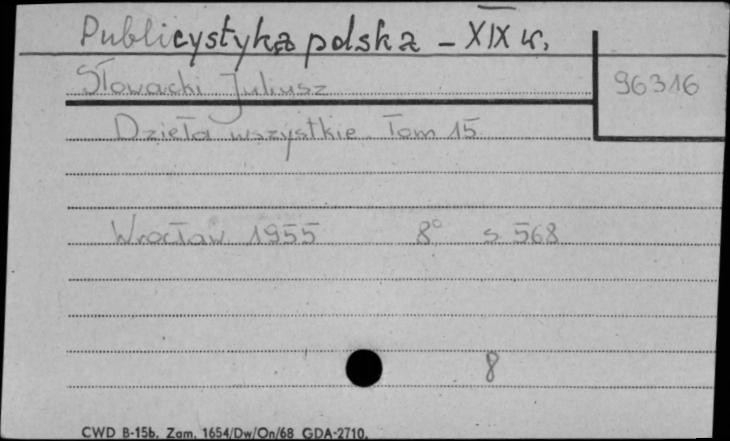 Publicystyka polska - XIX w.
Słowacki Juliusz
96316
Dzieła wszystkie. Tom 15
Wrocław 1955 8° s 568
8
CWD B-15b. Zam. 1654/Dw/On/68 GDA-2710.